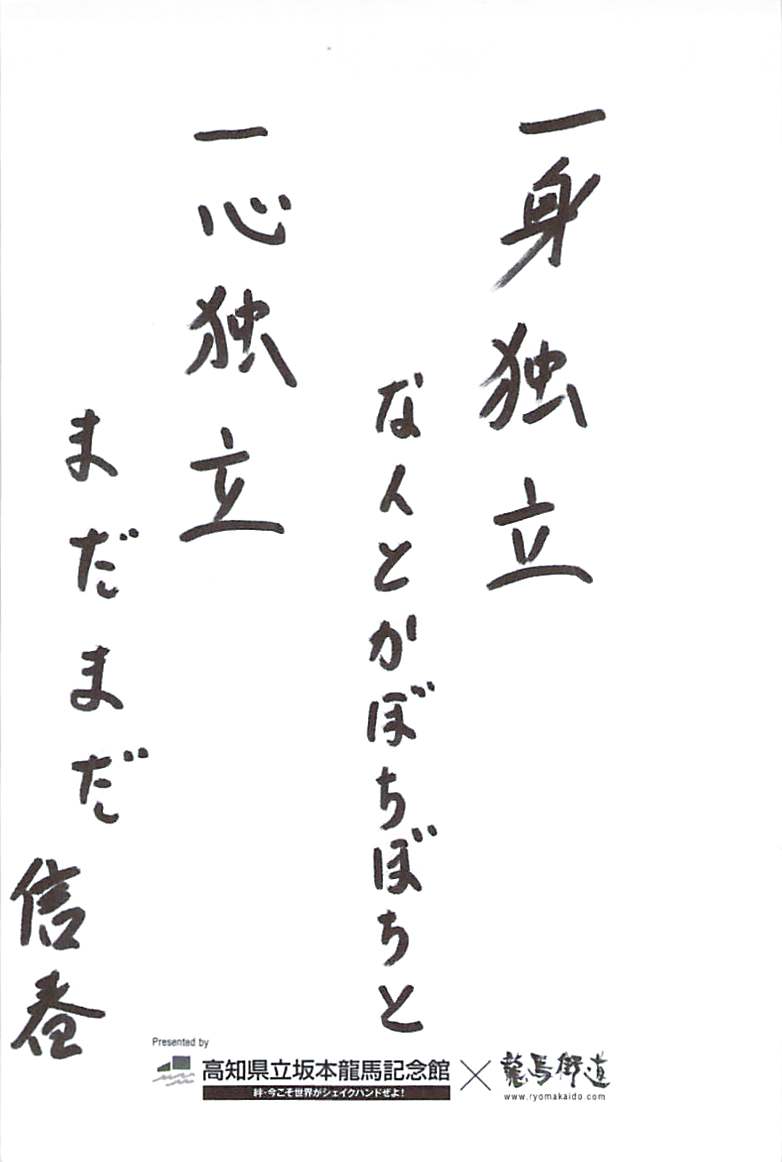 一身独立
なんとかぼちぼちと
一心独立
まだまだ
信巻
Presented by
高知県立坂本龍馬記念館×龍馬街道
絆・今こそ世界がシェイクハンドぜよ!
www.ryomakaido.com